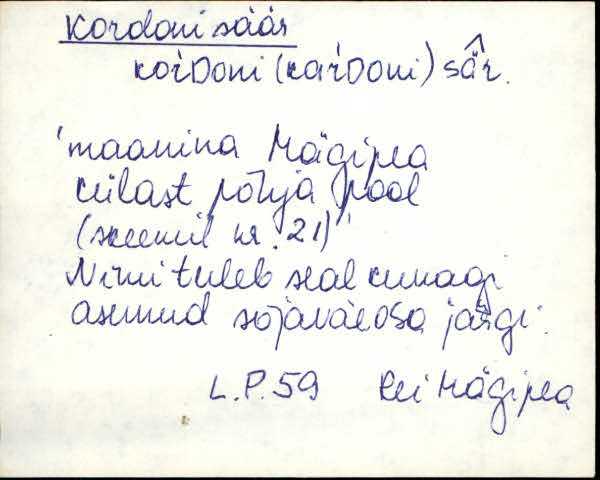 Kordoni säär
kor̀Doni (kar̀Doni) sä̂r.
'maanina Mägipea
külast põhja pool
(skeemil nr. 21)'
Nimi tuleb seal kunagi
asunud sõjaväeosa järgi.
L.P. 59 Mägipea